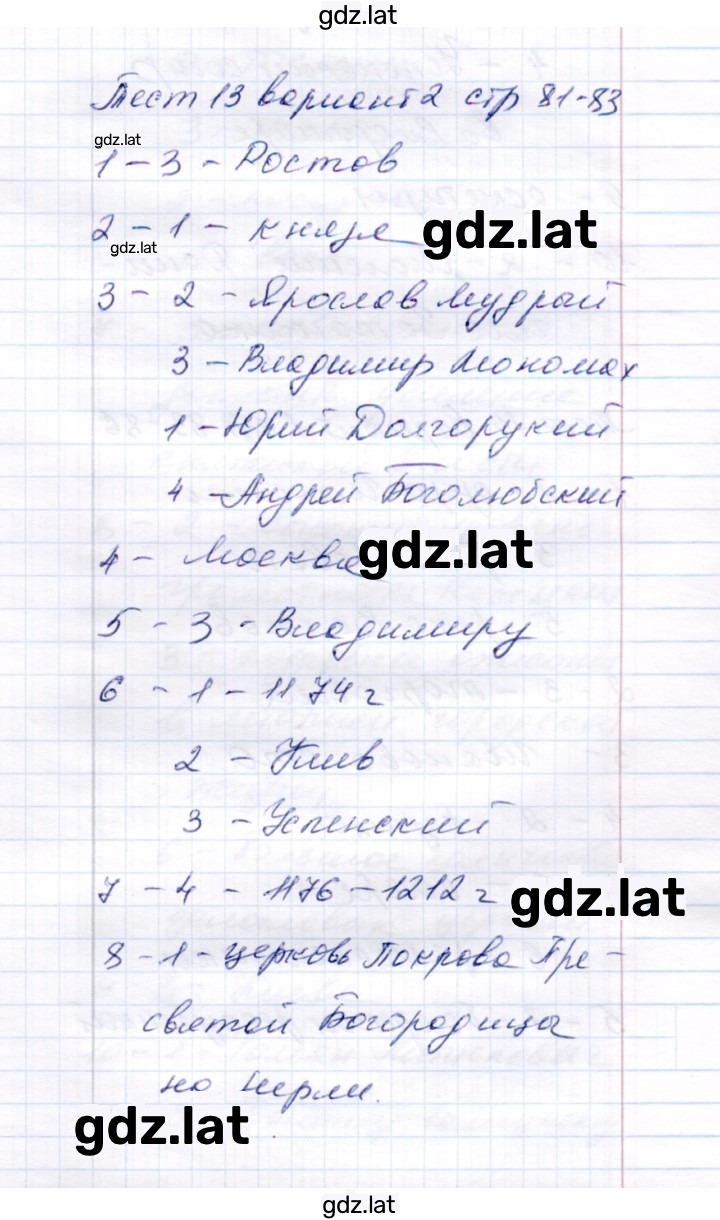 gdz.lat
Тест 13 вариант 2 стр 81-83
gdz.lat
1 - 3 - Ростов
2 - 1 - князя
gdz.lat
gdz.lat
3 - 2 - Ярослав Мудрый
3 - Владимир Мономах
1 - Юрий Долгорукий
4 - Андрей Боголюбский
4 - Москва
gdz.lat
5 - 3 - Владимиру
6 - 1 - 1174 г
2 - Киев
3 - Успенский
7 - 4 - 1176 - 1212 г
gdz.lat
8 - 1 - церковь Покрова Пре-
святой Богородицы
на Нерли.
gdz.lat
gdz.lat